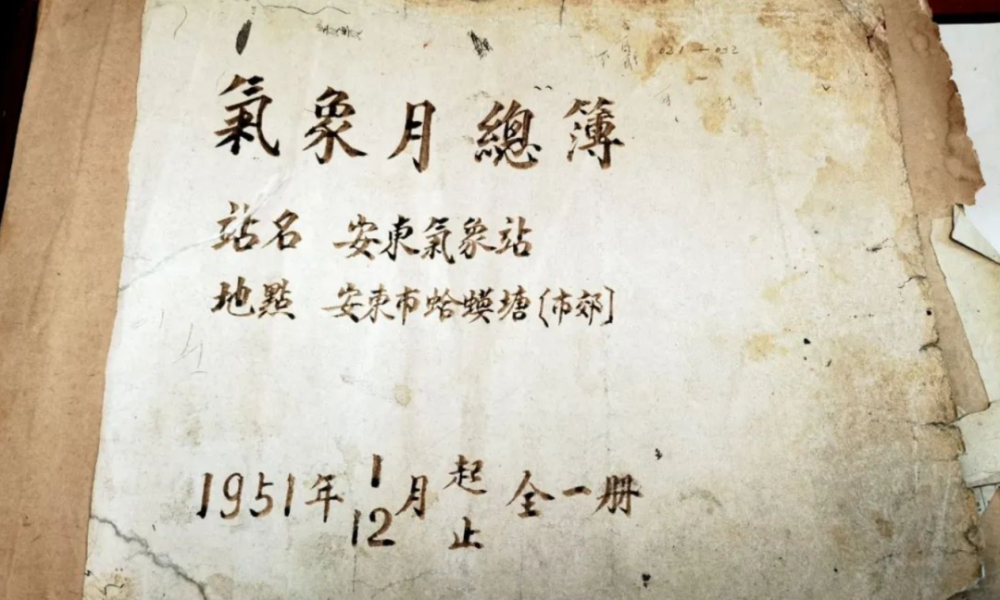 氣象月總簿
站名 安東氣象站
地點 安東市蛤蟆塘(市郊]
1951年 1/12 月 起/止 全一册